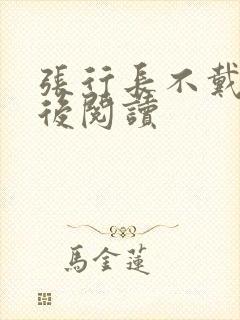 張行長不戴
後閱讀
馬金蓮